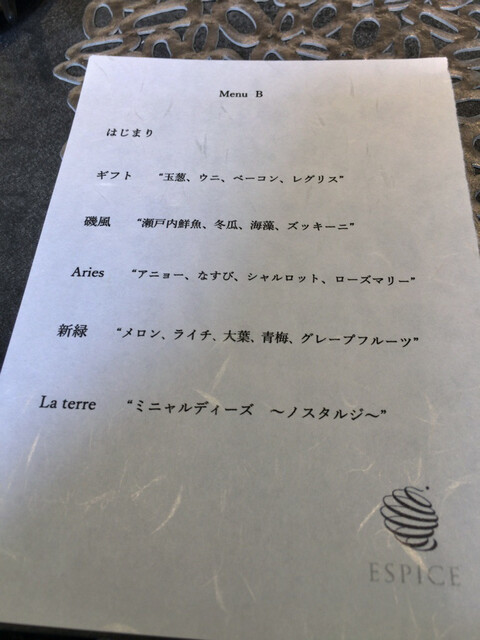 Menu B
はじまり
ギフト “玉葱、ウニ、ベーコン、レグリス”
磯風 “瀬戸内鮮魚、冬瓜、海藻、ズッキーニ”
Aries “アニョー、なすび、シャルロット、ローズマリー”
新緑 “メロン、ライチ、大葉、青梅、グレープフルーツ”
La terre “ミニャルディーズ ～ノスタルジ～”
ESPICE